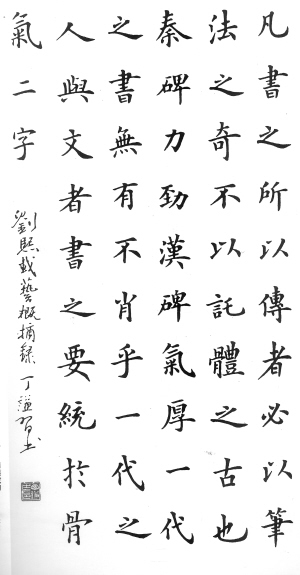 凡書之所以傳者必以筆
法之奇不以託體之古也
秦碑力勁漢碑氣厚一代
之書無有不肖乎一代之
人與文者書之要統於骨
氣二字
劉熙載藝概摘錄 丁